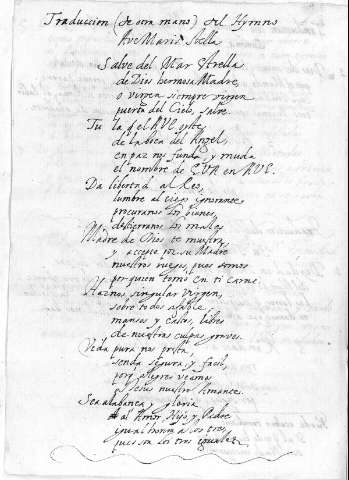 Traduccion (de otra mano) del Hymno
Ave Maris Stella
Salve del Mar Estrella
de Dios hermosa Madre,
o virgen siempre virgen
puerta del Cielo, salve.
Tu la q el AVE oyste
de la boca del Angel,
en paz nos funda, y muda
el nombre de EVA en AVE.
Da libertad al Reo,
lumbre al ciego ignorante
procuranos los bienes,
destierranos los males
Madre de Dios te muestra,
y accepte por su Madre
nuestros ruegos, pues somos
por quien tomó en ti carne
Haznos, singular virgen,
sobre todos afable
mansos y castos, libres
de nuestras culpas graves.
Vida pura nos presta,
senda segura, y facil,
porq alegres veamos
a Jesus nuestro Amante.
Sea alabança y gloria
al Amor Hijo, y Padre
igual honra a los tres,
pues son los tres iguales